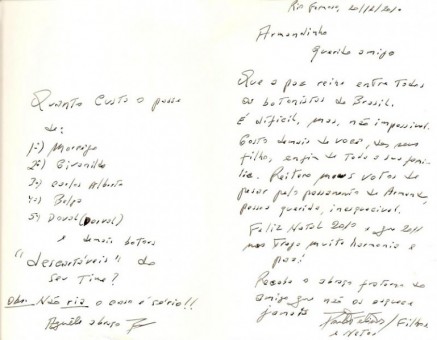 Quanto custa o passe
de:
1º) Moreira
2º)
3º) Carlos Alberto
4º) Belga
5º) Dorval (Dorval)
e demais botões
"descartáveis" do
seu Time?
Obs. Não ria o caso é sério!!
Aquele abraço
20/12/2010
Armandinho
Querido amigo
Que a paz reine entre todos
os botonistas do Brasil.
É difícil, mas, não impossível.
Gosto demais de você, dos seus
filhos, enfim de toda a sua famí-
lia. Reitero meus votos de
pesar pelo passamento do Armando,
pessoa querida, inesquecível.
Feliz Natal 2010 e que 2011
nos traga muito harmonia e
paz!
Receba o abraço fraterno do
amigo que não os esquece
jamais / Filhos
e Netos